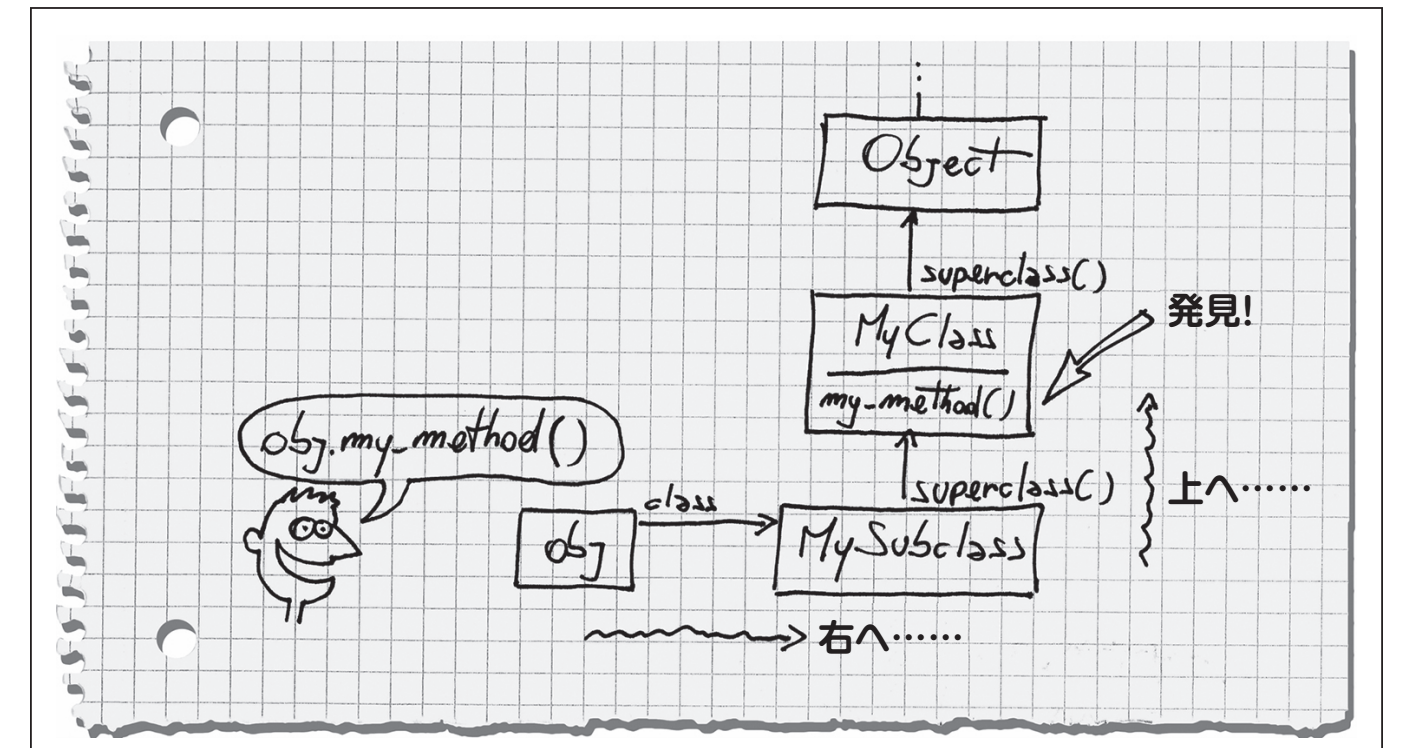 Object
superclass()
発見!
MyClass
my_method()
obj.my_method()
superclass()
上へ……
class
obj
MySubclass
右へ……